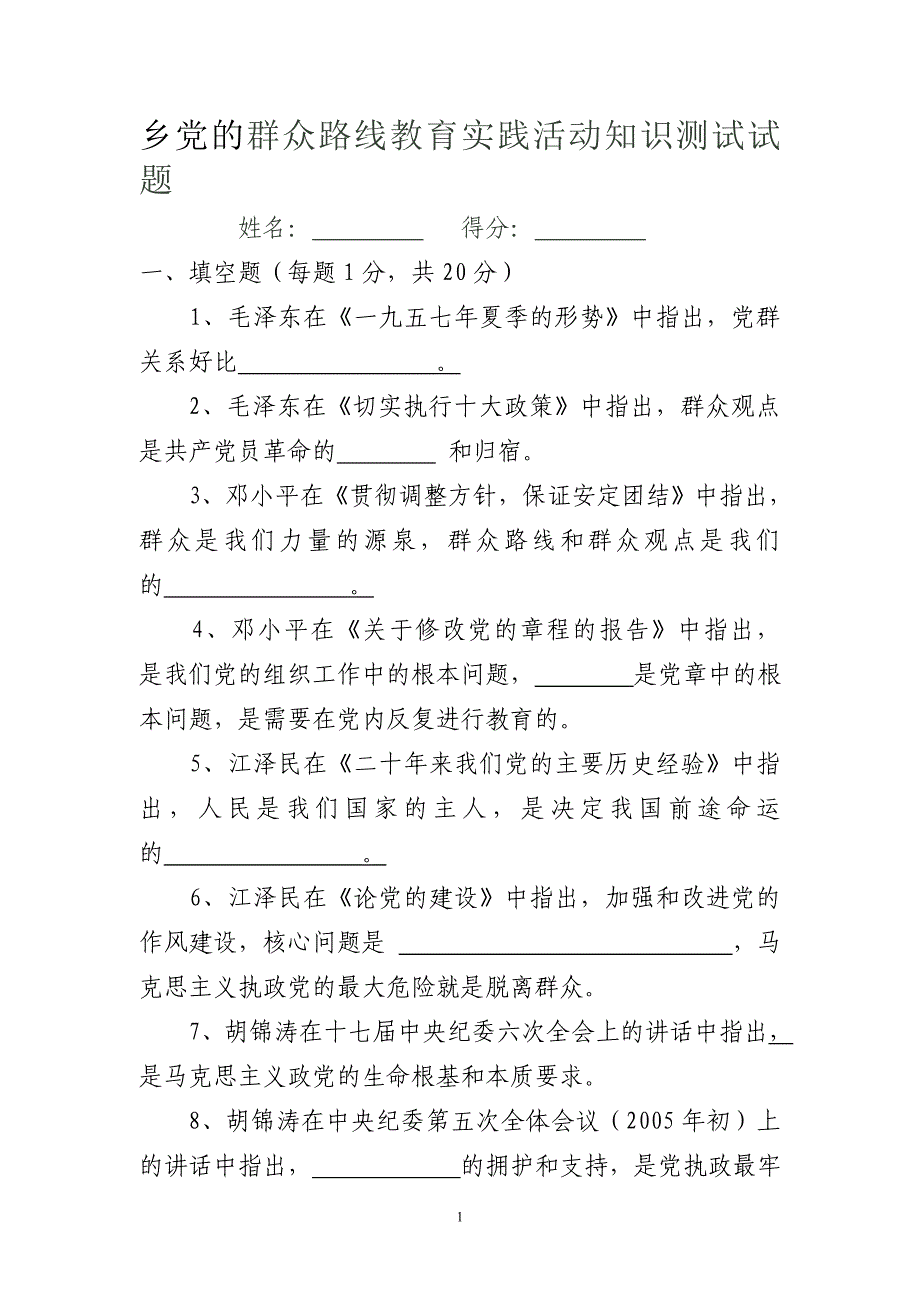 乡党的群众路线教育实践活动知识测试试
题
姓名：__________ 得分：__________
一、填空题（每题1分，共20分）
1、毛泽东在《一九五七年夏季的形势》中指出，党群
关系好比________________。
2、毛泽东在《切实执行十大政策》中指出，群众观点
是共产党员革命的________ 和归宿。
3、邓小平在《贯彻调整方针，保证安定团结》中指出，
群众是我们力量的源泉，群众路线和群众观点是我们
的_______________。
4、邓小平在《关于修改党的章程的报告》中指出，
是我们党的组织工作中的根本问题，________是党章中的根
本问题，是需要在党内反复进行教育的。
5、江泽民在《二十年来我们党的主要历史经验》中指
出，人民是我们国家的主人，是决定我国前途命运
的________________。
6、江泽民在《论党的建设》中指出，加强和改进党的
作风建设，核心问题是 ___________________________，马
克思主义执政党的最大危险就是脱离群众。
7、胡锦涛在十七届中央纪委六次全会上的讲话中指出，__
是马克思主义政党的生命根基和本质要求。
8、胡锦涛在中央纪委第五次全体会议（2005年初）上
的讲话中指出，____________的拥护和支持，是党执政最牢
1